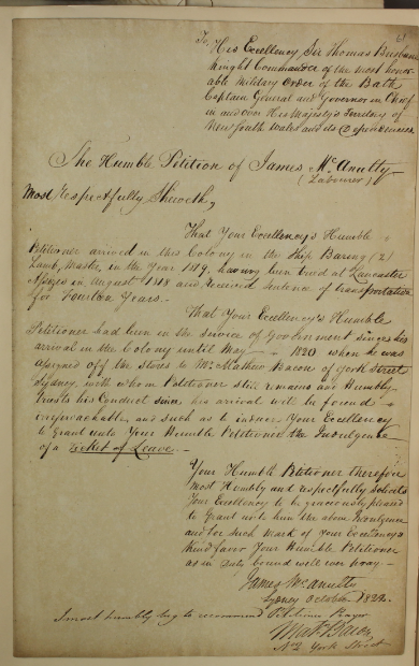 61
To His Excellency Sir Thomas Brisbane
Knight Commander of the most honor-
able Military Order of the Bath
Captain General and Governor in Chief
in and over His Majesty's Territory of
New South Wales and its Dependencies
The Humble Petition of James McAnutty
(Labourer)
Most Respectfully Sheweth,
That Your Excellency's Humble
Petitioner arrived in this Colony in the Ship Baring (2)
Lamb, Master, in the Year 1819, having been tried at Lancaster
Assizes in August 1818 and received sentence of transportation
for fourteen Years. -
That Your Excellency's Humble
Petitioner had been in the service of Government since his
arrival in the Colony until May 1820 when he was
assigned off the Stores to Mr. Mathew Bacon of York Street
Sydney, with whom Petitioner still remains and Humbly
trusts his Conduct since his arrival will be found
irreproachable and such as to induce Your Excellency
to Grant unto Your Humble Petitioner the Indulgence
of a Ticket of Leave. -
Your Humble Petitioner therefore
most Humbly and respectfully solicits
Your Excellency to be graciously pleased
to Grant unto him the above Indulgence
and for such mark of Your Excellency's
kind favor Your Humble Petitioner
as in Duty bound will ever pray -
James McAnutty
Sydney October 1824.
I most humbly beg to recommend Petitioners Prayer
Matw. Bacon,
No 2 York Street